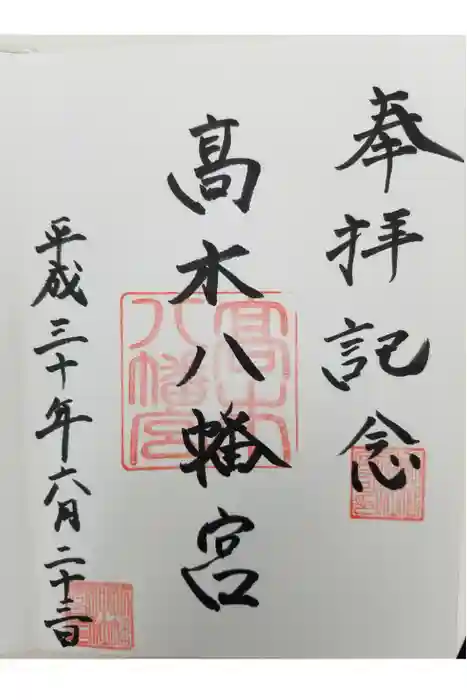 奉拝記念
髙木八幡宮
平成三十年六月二十三日
髙木八幡宮